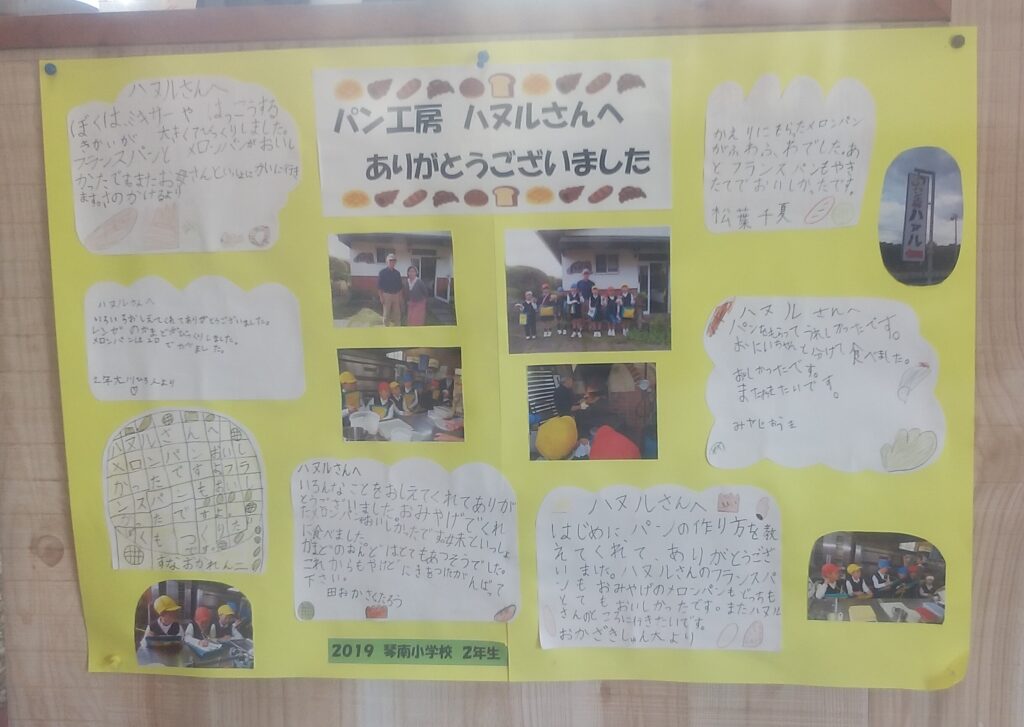 パン工房 ハヌルさんへ
ありがとうございました
ハヌルさんへ
ぼくは、ミキサーや はっこうする
きかいが 大きくてびっくりしました。
フランスパンと メロンパンがおいし
かったです。またお母さんといっしょにかいに行き
ます。
かえりにもらったメロンパン
がふわふわでした。あ
とフランスパンもやき
たてでおいしかったです。
松葉千夏
パン工房
ハヌル
ハヌルさんへ
いろいろおしえてくれてありがとうございました。
メロンパンは
ハヌル さんへ
パンをもらってうれしかったです。
おにいちゃんと分けて食べました。
おいしかったです。
また
ハヌルさんへ
メロンパン
ハヌルさんへ
いろんなことをおしえてくれてありが
とうございました。おみやげでくれ
たメロンパンおいしかったです。妹といっしょ
に食べました。
かまどのおんどはとてもあつそうでした。
これからもやけどにきをつけてがんばって
下さい。
田おかさくたろう
ハヌルさんへ
はじめに、パンの作り方を教
えてくれて、ありがとうござい
ました。ハヌルさんのフランスパ
ンもおみやげのメロンパンもどっちも
とてもおいしかったです。またハヌル
さんのところに行きたいです。
おかざきしゅん大より
2019 琴南小学校 2年生